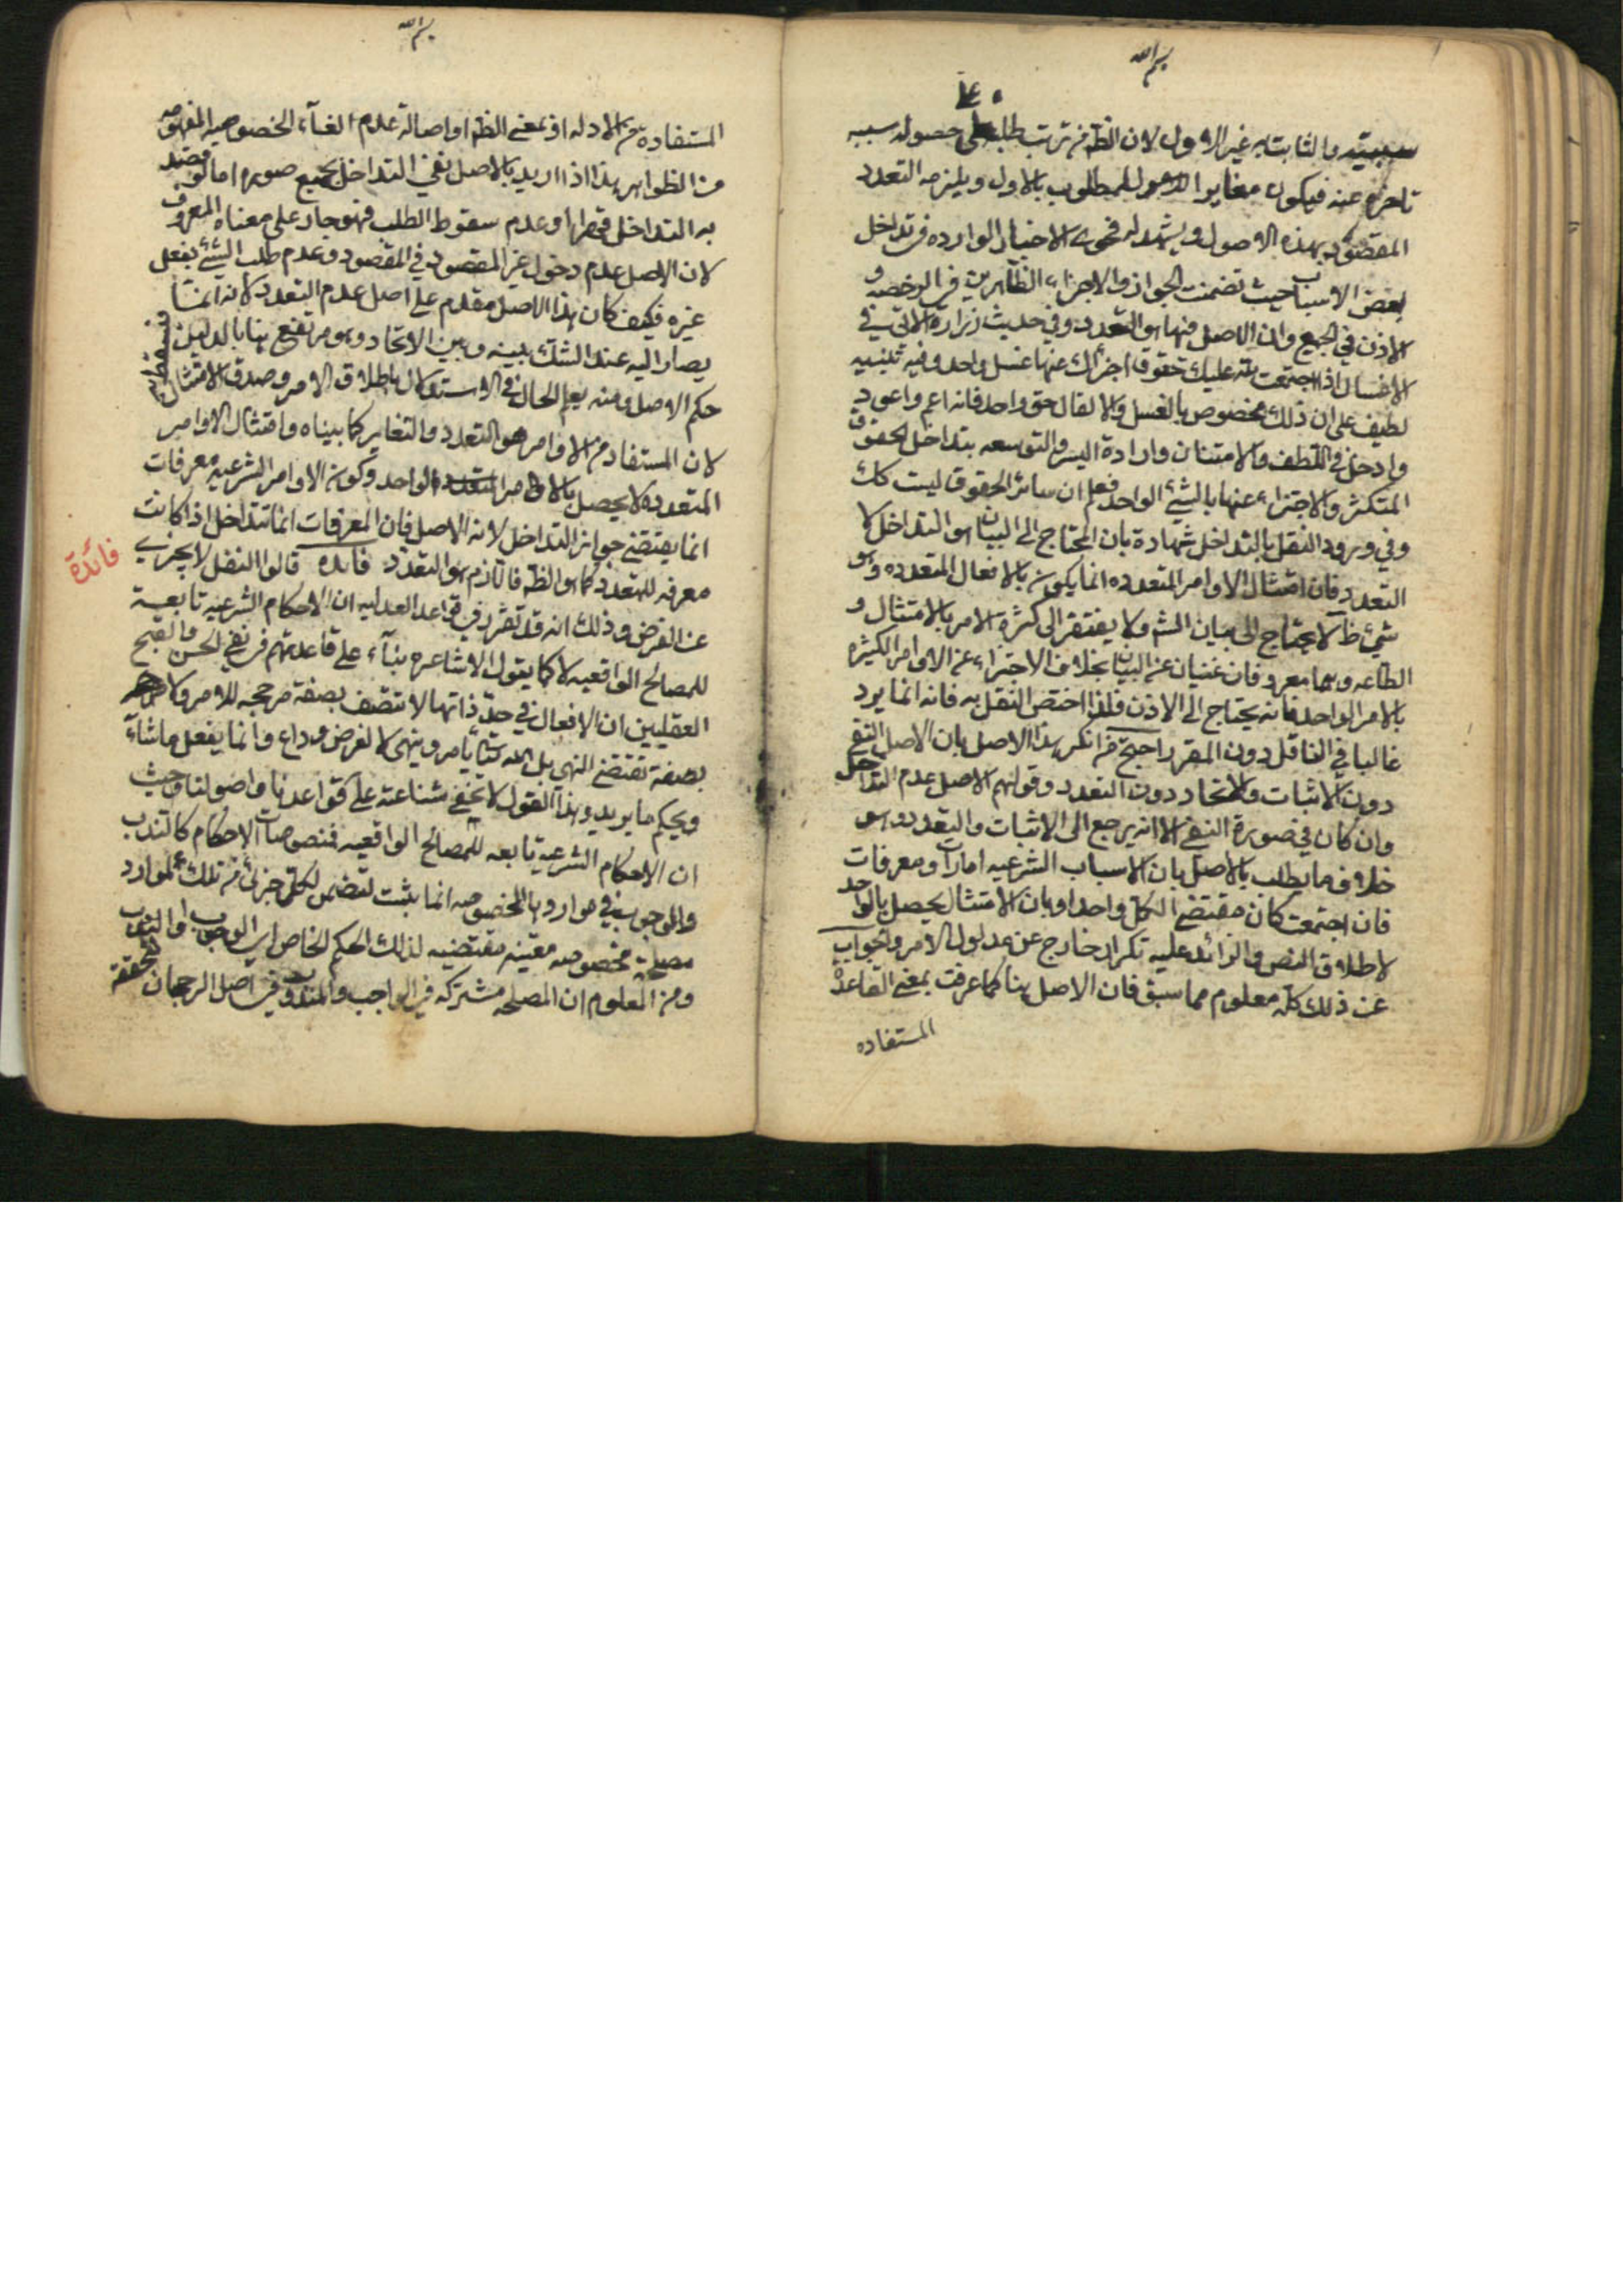 بسم الله
سببيته والثابت به غير الاول لان الظ من ترتب طلب على حصوله سببه
تاخره عنه فيكون مغايرا للمطلوب بالاول ويلزمه التعدد
المقصود بهذه الاصول ويشهد له فحوى الاخبار الواردة في تداخل
بعض الاسباب حيث تضمنت الجواز والاجزاء الظاهرين في الرخصة و
الاذن في الجميع وان الاصل فيها هو التعدد وفي حديث زرارة الاتي في
الاغسال اذا اجتمعت لله عليك حقوق اجزأك عنها غسل واحد وفيه تنبيه
لطيف على ان ذلك مخصوص بالغسل والا لقال حق واحد فانه اعم واعود
وادخل في اللطف والامتنان وارادة اليسر والتوسعه بتداخل الحقوق
المتكثرة والاجتزاء عنها بالشئ الواحد فعلم ان سائر الحقوق ليست كك
وفي ورود النقل بالتداخل شهادة بان المحتاج الى البيان هو التداخل لا
التعدد فان امتثال الاوامر المتعدده انما يكون بالافعال المتعدده وهو
شئ ظ لا يحتاج الى بيان الش ولا يفتقر الى كثرة الامر بالامتثال و
الطاعه وهما معروفان غنيان عن البيان بخلاف الاجتزاء عن الاوامر الكثيره
بالامر الواحد فانه يحتاج الى الاذن فلذا اختص النقل به فانه انما يرد
غالبا في الناقل دون المقرر احتج من انكر هذا الاصل بان الاصل النفي
دون الاثبات والاتحاد دون التعدد وقولهم الاصل عدم التداخل
وان كان في صورة النفي الا انه يرجع الى الاثبات والتعدد وهو
خلاف ما يطلب بالاصل بان الاسباب الشرعيه امارات ومعرفات
فان اجتمعت كان مقتضى الكل واحدا وبان الامتثال يحصل بالواحد
لاطلاق النص والزائد عليه تكرار خارج عن مدلول الامر والجواب
عن ذلك كله معلوم مما سبق فان الاصل هنا كما عرفت بمعنى القاعدة
المستفاده
بسم الله
المستفادة من الادله او بمعنى الظ او اصالة عدم الغاء الخصوصيه المفهومه
من الظواهر هذا اذا اريد بالاصل نفي التداخل بجميع صوره اما لو قصد
به التداخل قهرا او عدم سقوط الطلب فهو جار على معناه المعروف
لان الاصل عدم دخول غير المقصود في المقصود وعدم طلب الشئ بفعل
غيره فكيف كان هذا الاصل مقدم على اصل عدم التعدد لانه انما
يصار اليه عند الشك بينه وبين الاتحاد وهو مرتفع هنا بالدليل فيسقط
حكم الاصل ومنه يعلم الحال في الاستدلال باطلاق الامر وصدق الامتثال
لان المستفاد من الاوامر هو التعدد والتغاير كما بيناه وامتثال الاوامر
المتعدده لا يحصل بالامر الواحد وكون الاوامر الشرعيه معرفات
انما يقتضي جواز التداخل لا انه الاصل فان المعرفات انما تتداخل اذا كانت
معرفه للتعدد كما هو الظ فاللازم هو التعدد فائده قالوا النفل لا يجزي
فائدة
عن الفرض وذلك انه قد تقرر في قواعد العدليه ان الاحكام الشرعيه تابعة
للمصالح الواقعيه لا كما يقول الاشاعره بناء على قاعدتهم في نفي الحسن والقبح
العقليين ان الافعال في حد ذاتها لا تتصف بصفة مرجحه للامر ولا
بصفة تقتضي النهي بل الله تعالى يأمر وينهى لا لغرض وداع وانما يفعل ما شاء
ويحكم ما يريد وهذا القول لا يخفى شناعته على قواعدنا واصولنا وحيث
ان الاحكام الشرعيه تابعه للمصالح الواقعيه فخصوصيات الاحكام كالندب
والوجوب في مواردها المخصوصه انما يثبت لتضمن كل جزئي من تلك الموارد
مصلحة مخصوصه معينه مقتضيه لذلك الحكم الخاص اي الوجوب او الندب
ومن المعلوم ان المصلحه مشتركه في الواجب والمندوب في اصل الرجحان